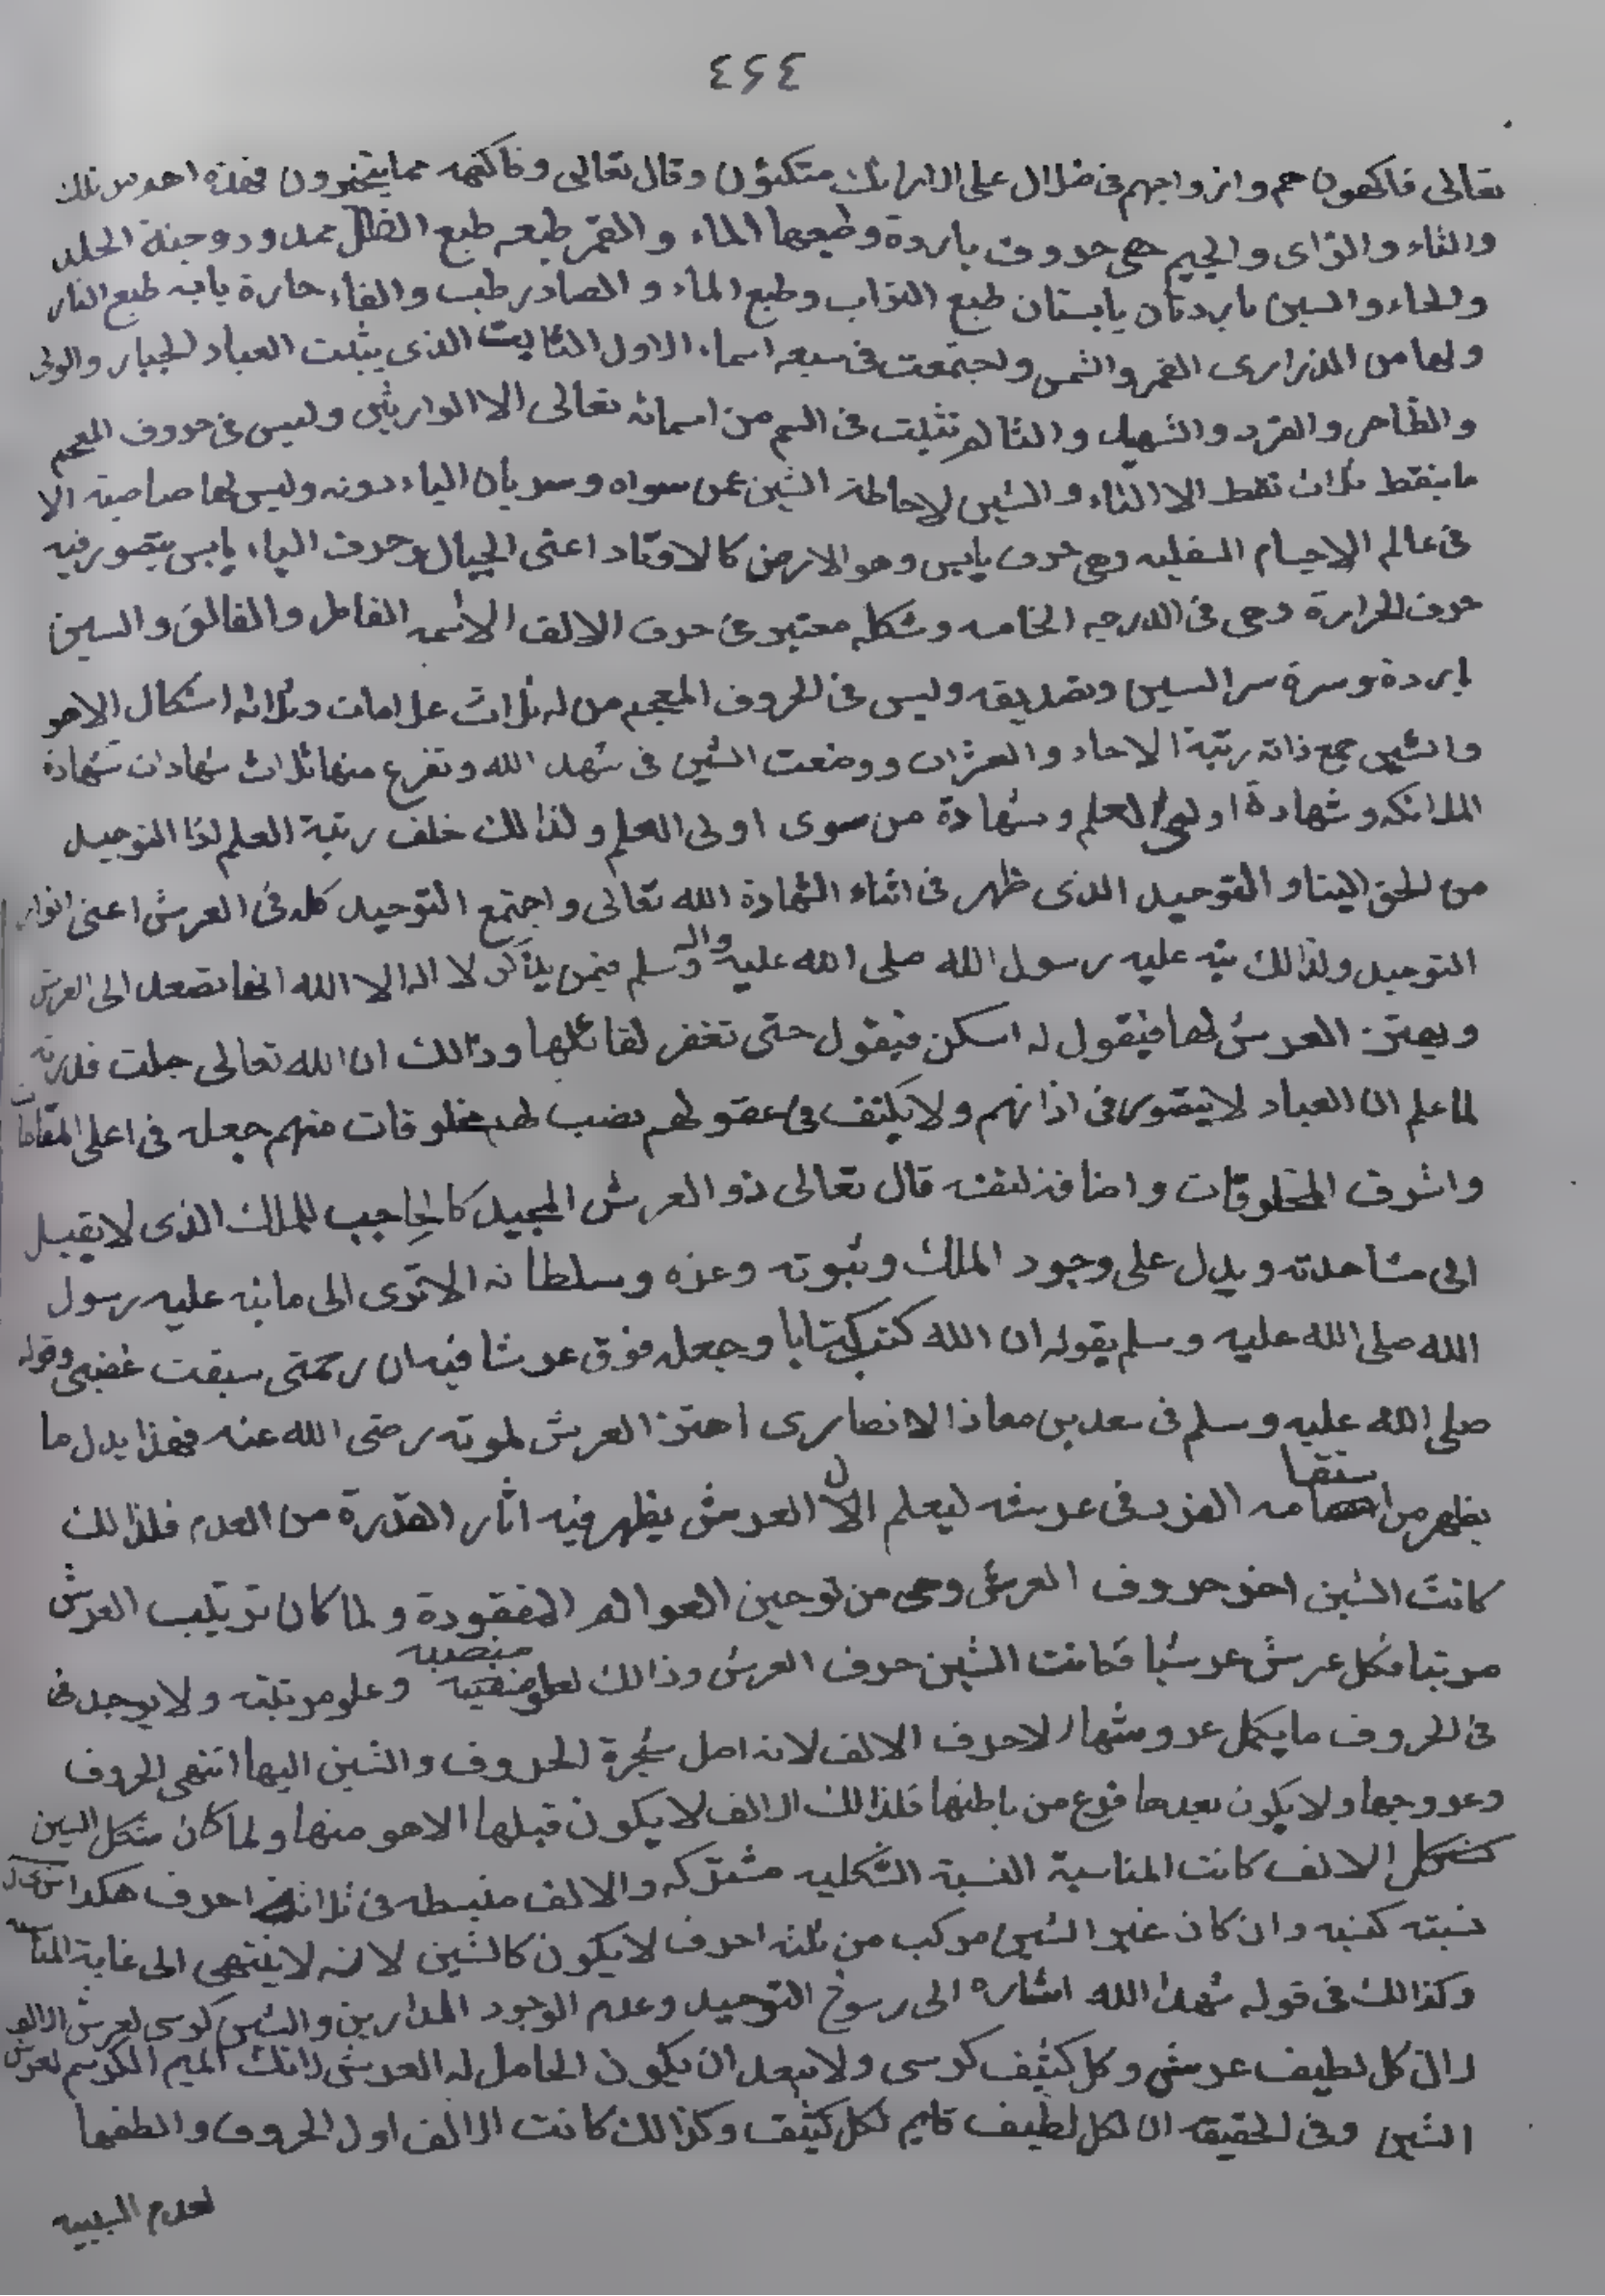 ٤٢٤
تعالى فاكهون هم وازواجهم فى ظلال على الارائك متكئون وقال تعالى وفاكهه مما يتخيرون فهذه
والثاء والزاى والجيم هى حروف باردة وطبعها الماء والقمر طبعه طبع الظلال ممدود وجنة الخلد
والخاء والسين باردتان يابستان طبع التراب وطبع الماء والصاد رطب والفاء حارة يابه طبع النار
ولها من الدرارى القمر والشمس واجتمعت فى سبعه اسماء الاول الثابت الذى يثبت العباد الجبار والولى
والظاهر والفرد والشهيد والثا لم تثبت فى اسم من اسمائه تعالى الا الوارث وليس فى حروف المعجم
ما ينقط ثلاث نقط الا الثاء والشين لاحاطة الشين عمن سواه وسريان الياء دونه وليس لها صاحبة الا
فى عالم الاجسام السفليه وهى حرف يابس وهو الارض كالاوتاد اعنى الجبال وحرف الياء يابس يتصور فيه
حرف الحرارة وهى فى الدرجه الخامسه وشكله معتبر عن حرف الالف الاسمه الفاطر والفالق والسين
باردة وسرة سر السين وتصديقه وليس فى الحروف المعجم من له ثلاث علامات وثلاثه اشكال الا هو
والشين جمع ذاته رتبة الاحاد والعشرات ووضعت الشين فى شهد الله وتفرع منها ثلاث شهادات شهادة
الملائكه وشهادة اولى العلم وشهادة من سوى اولى العلم ولذالك خلف رتبة العلم لذا التوحيد
من الحق الينا والتوحيد الذى ظهر فى اثناء الشهادة الله تعالى واجتمع التوحيد كله فى العرش اعنى انوار
التوحيد ولذالك نبه عليه رسول الله صلى الله عليه واله وسلم فيمن يذكر لا اله الا الله انها تصعد الى العرش
ويهتز العرش لها فيقول له اسكن فيقول حتى تغفر لقائلها وذالك ان الله تعالى جلت قدرته
لما علم ان العباد لا يتصور فى اذانهم ولا يكتف فى عقولهم نصب لهم مخلوقات منهم جعله فى اعلى المقامات
واشرف المخلوقات واضافه لنفسه قال تعالى ذو العرش المجيد كالحاجب للملك الذى لا يقبل
الى مشاهدته ويدل على وجود الملك وثبوته وعزه وسلطانه الا ترى الى ما نبه عليه رسول
الله صلى الله عليه وسلم بقوله ان الله كتب كتابا وجعله فوق عرشا فيه ان رحمتى سبقت غضبى وقوله
صلى الله عليه وسلم فى سعد بن معاذ الانصارى اهتز العرش لموته رضى الله عنه فهذا يدل ما
يظهر من انتقامه الفرد فى عرشه ليعلم الان العرش يظهر فيه اثار القدرة من العدم فلذالك
كانت الشين اخر حروف العرش وهى من توحين العوالم المفقودة ولما كان ترتيب العرش
مرتبا فكل عرش عرشيا فكانت الشين حرف العرش وذالك لعلو منصبه وعلو مرتبته ولا يوجد فى
فى الحروف ما يكمل عروشها الا حرف الالف لانه اصل شجرة الحروف والشين اليها انتهى الحروف
وعروجها ولا يكون بعدها فرع من باطنها فلذالك الالف لا يكون قبلها الا هو منها ولما كان شكل السين
كشكل الالف كانت المناسبة النسبة الشكليه مشتركه والالف منبسطه فى ثلاثة احرف هكذا
نسبته كنسبه وان كان غير الشين مركب من ثلثه احرف لا يكون كالشين لانه لا ينتهى الى غاية
وكذالك فى قوله شهد الله اشاره الى رسوخ التوحيد وعدم الوجود المدارين والشين كرسى لعرش الالف
لان كل لطيف عرش وكل كثيف كرسى ولا يبعد ان يكون الحامل له العرش لانك الميم الكرسى لعرش
الشين وفى الحقيقه ان لكل لطيف قايم لكل كثيف وكذالك كانت الالف اول الحروف والطفها
لعدم